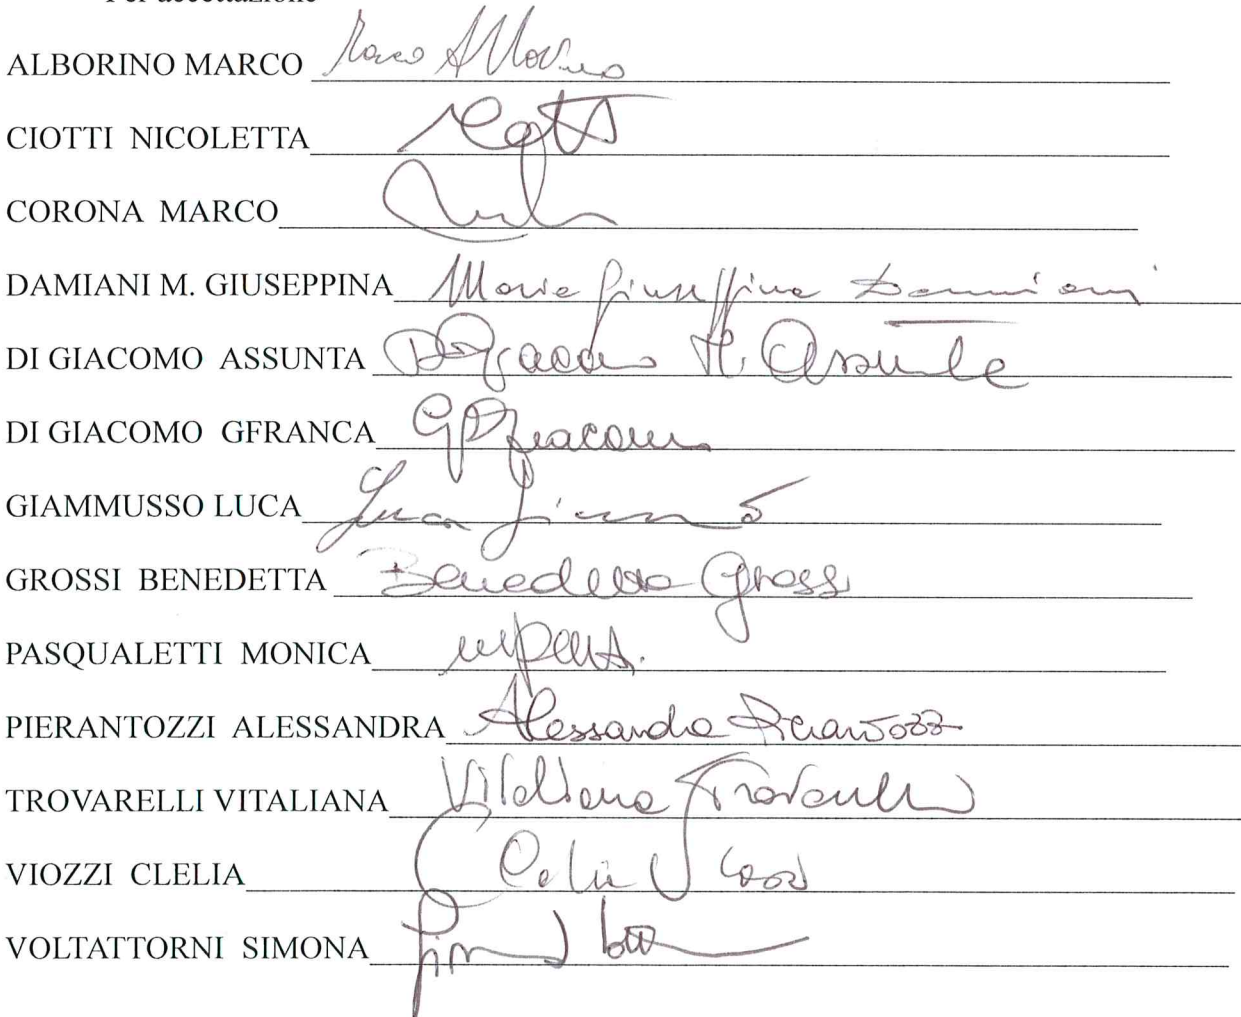 Per accettazione
ALBORINO MARCO Marco Alborino
CIOTTI NICOLETTA
CORONA MARCO
DAMIANI M. GIUSEPPINA Maria Giuseppina Damiani
DI GIACOMO ASSUNTA Di Giacomo M. Assunta
DI GIACOMO GFRANCA G Di Giacomo
GIAMMUSSO LUCA Luca
GROSSI BENEDETTA Benedetta Grossi
PASQUALETTI MONICA
PIERANTOZZI ALESSANDRA Alessandra Pierantozzi
TROVARELLI VITALIANA Vitaliana Trovarelli
VIOZZI CLELIA Clelia Viozzi
VOLTATTORNI SIMONA